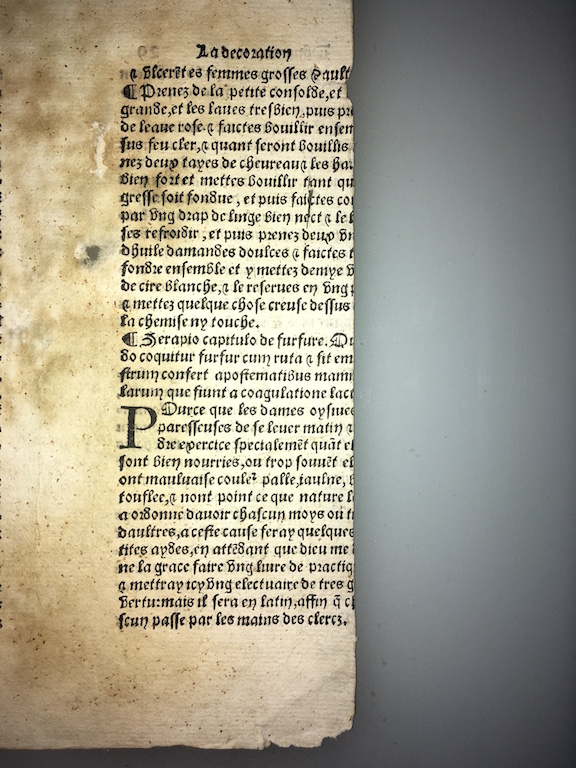 La decoration
⁊ Vlcerēt es femmes grosses ⁊ ault
¶ Prenez de la petite consolde, et
grande, et les laues tresbien, puis pre
de leaue rose ⁊ faictes bouillir ensem
sus feu cler, ⁊ quant seront bouillis
nez deux tayes de cheureau ⁊ les ha
bien fort et mettes bouillir tant qu
gresse soit fondue, et puis faictes co
par vng drap de linge bien nect ⁊ le l
ses refroidir, et puis prenez deux vn
dhuile damandes doulces ⁊ faictes
fondre ensemble et y mettez demye v
de cire blanche, ⁊ le reserues en vng
⁊ mettez quelque chose creuse dessus
la chemise ny touche.
¶ Serapio capitulo de furfure. Qu
do coquitur furfur cum ruta ⁊ fit em
strum confert apostematibus mami
larum que fiunt a coagulatione lact
POurce que les dames oysiues
paresseuses de se leuer matin ⁊
dre exercice specialemēt quāt el
sont bien nourries, ou trop souuēt el
ont mauluaise couleᷣ palle, iaulne,
touflee, ⁊ nont point ce que nature l
a ordonne dauoir chascun moys ou t
daultres, a ceste cause feray quelques
tites aydes, en attēdant que dieu me
ne la grace faire vng liure de practiq
⁊ mettray icy vng electuaire de tres g
vertu: mais il sera en latin, affin q̄ ch
scun passe par les mains des clercz.